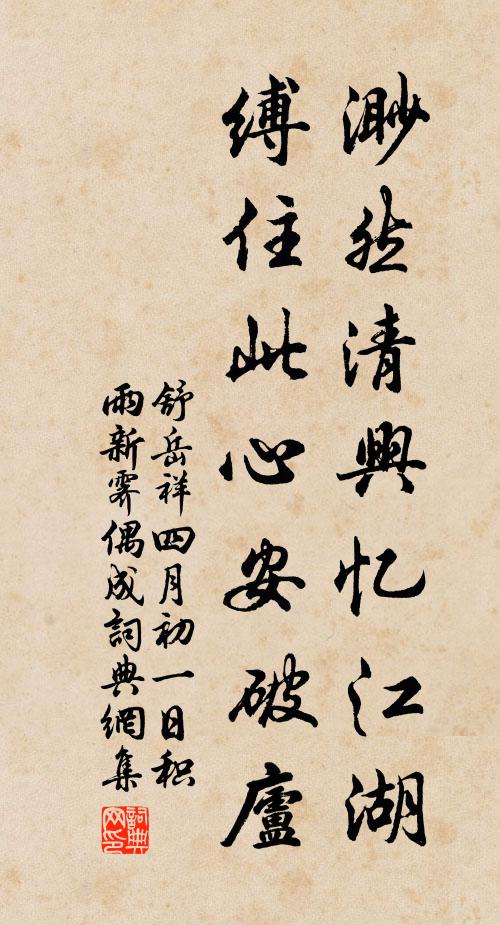 渺然清興忆江湖
縛住此心安破廬
舒岳祥四月初一日积
雨新霽偶成詞典網集
詞典
网印